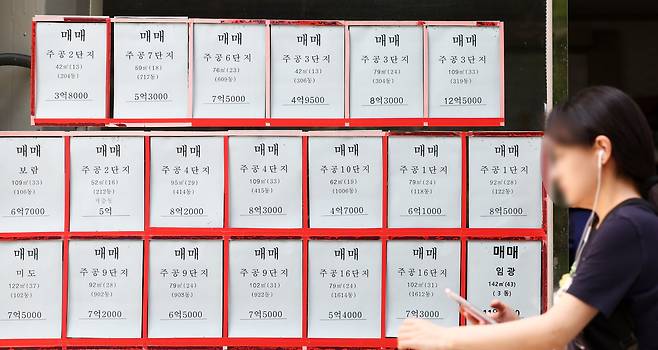 매매
주공2단지
42㎡(13)
(204동)
3억8000
매매
주공7단지
59㎡(18)
(717동)
5억3000
매매
주공6단지
76㎡(23)
(609동)
7억5000
매매
주공3단지
42㎡(13)
(306동)
4억9500
매매
주공3단지
79㎡(24)
(304동)
8억3000
매매
주공3단지
109㎡(33)
(319동)
12억5000
매매
보람
109㎡(33)
(106동)
6억7000
매매
주공2단지
52㎡(16)
(212동)
5억
매매
주공4단지
95㎡(29)
(414동)
8억2000
매매
주공4단지
109㎡(33)
(415동)
8억3000
매매
주공10단지
62㎡(19)
(1006동)
4억7000
매매
주공1단지
79㎡(24)
(118동)
6억1000
매매
주공1단지
92㎡(28)
(122동)
8억5000
매매
미도
122㎡(37)
(102동)
7억5000
매매
주공9단지
92㎡(28)
(902동)
7억2000
매매
주공9단지
79㎡(24)
(903동)
6억5000
매매
주공9단지
102㎡(31)
(932동)
7억5000
매매
주공16단지
79㎡(24)
(1614동)
5억4000
매매
주공16단지
102㎡(31)
(1612동)
7억3000
매매
임광
142㎡(43)
(3동)